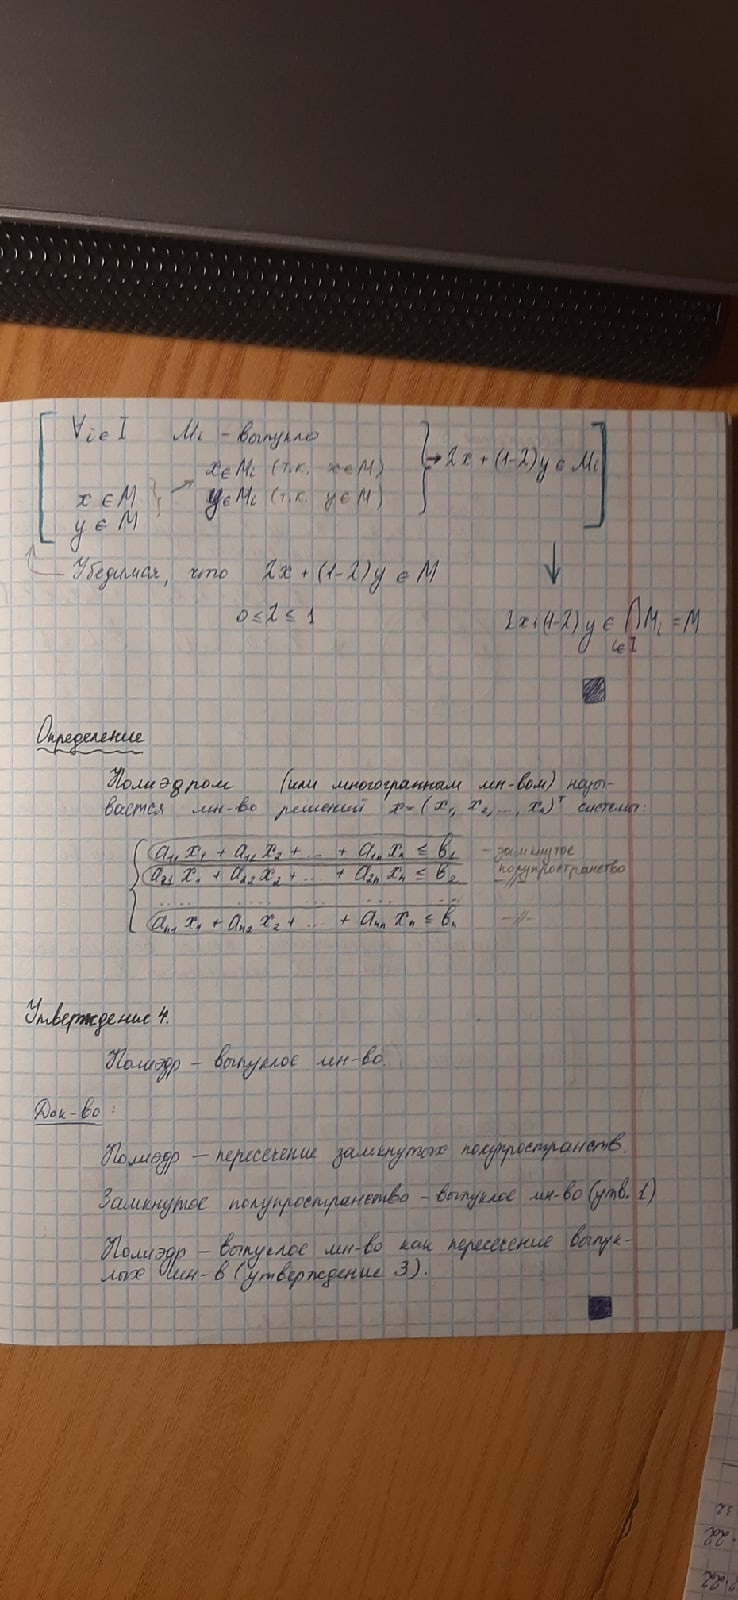 ∀i∈I Mi - выпукло
x∈Mi (т.к. x∈M)
→ 2x + (1-2)y ∈ Mi
x ∈ M
y∈Mi (т.к. y∈M)
y ∈ M
Убедимся, что 2x + (1-2)y ∈ M
0 ≤ 2 ≤ 1
2x+(1-2)y ∈ ⋂Mi = M
i∈I
Определение
Полиэдром (или многогранным мн-вом) назы-
вается мн-во решений x=(x₁, x₂,..., xₙ)ᵀ системы:
a₁₁x₁ + a₁₂x₂ + ... + a₁ₙxₙ ≤ b₁ - замкнутое
полупространство
a₂₁x₁ + a₂₂x₂ + ... + a₂ₙxₙ ≤ b₂ -//-
.... .... ... ... ...
aₙ₁x₁ + aₙ₂x₂ + ... + aₙₙxₙ ≤ bₙ -//-
Утверждение 4.
Полиэдр - выпуклое мн-во.
Док-во:
Полиэдр - пересечение замкнутых полупространств
Замкнутое полупространство - выпуклое мн-во (утв. 1)
Полиэдр - выпуклое мн-во как пересечение выпук-
лых мн-в (утверждение 3).